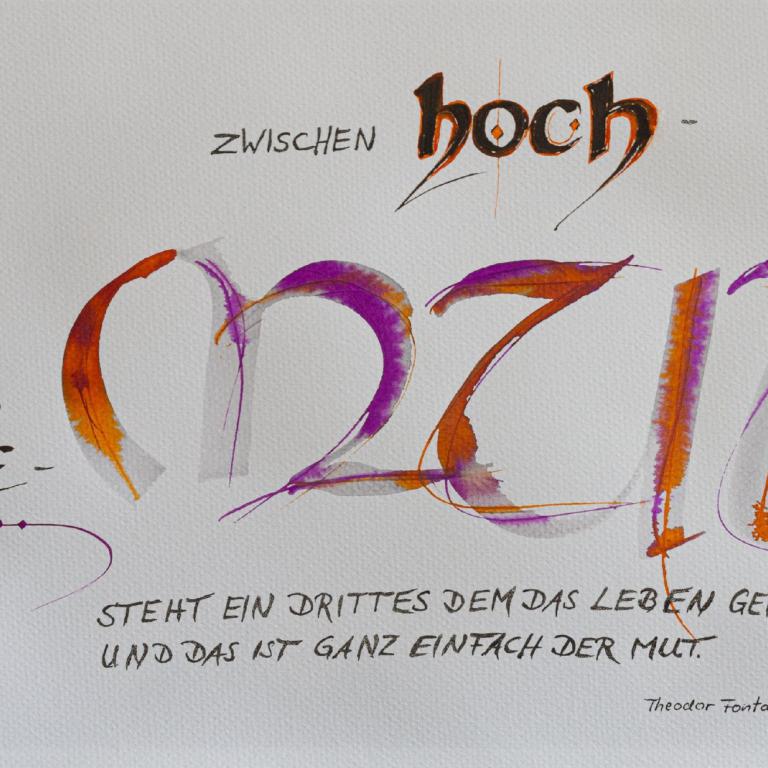 ZWISCHEN hoch -
MU
STEHT EIN DRITTES DEM DAS LEBEN GE
UND DAS IST GANZ EINFACH DER MUT.
Theodor Fonta